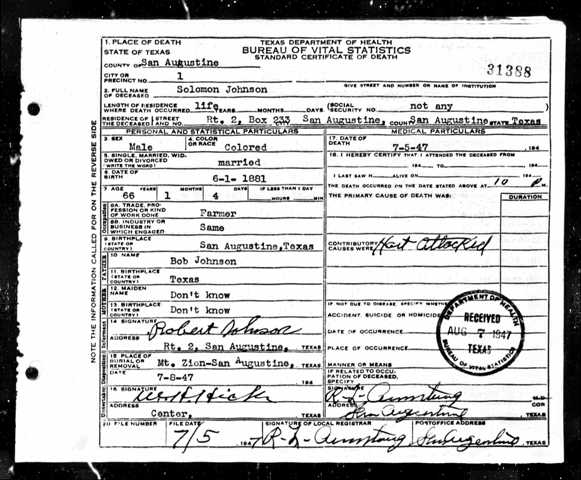 1. PLACE OF DEATH
STATE OF TEXAS
COUNTY OF San Augustine
CITY OR
PRECINCT NO. 1
TEXAS DEPARTMENT OF HEALTH
BUREAU OF VITAL STATISTICS
STANDARD CERTIFICATE OF DEATH
31388
2. FULL NAME
OF DECEASED Solomon Johnson
GIVE STREET AND NUMBER OR NAME OF INSTITUTION
LENGTH OF RESIDENCE
WHERE DEATH OCCURRED life YEARS MONTHS DAYS (SOCIAL
SECURITY NO. not any
RESIDENCE OF (STREET
THE DECEASED AND NO. Rt. 2, Box 233 San Augustine, COUNTY San Augustine STATE Texas
PERSONAL AND STATISTICAL PARTICULARS
3. SEX Male
4. COLOR
OR RACE Colored
5. SINGLE, MARRIED, WID-
OWED OR DIVORCED
(WRITE THE WORD) married
6. DATE OF
BIRTH 6-1- 1881
7. AGE 66 YEARS 1 MONTHS 4 DAYS IF LESS THAN 1 DAY
HOURS MIN
8A. TRADE, PRO-
FESSION OR KIND
OF WORK DONE Farmer
8B. INDUSTRY OR
BUSINESS IN
WHICH ENGAGED Same
9. BIRTHPLACE
(STATE OR
COUNTRY) San Augustine, Texas
10. NAME Bob Johnson
11. BIRTHPLACE
(STATE OR
COUNTRY) Texas
12. MAIDEN
NAME Don't know
13. BIRTHPLACE
(STATE OR
COUNTRY) Don't know
14. SIGNATURE Robert Johnson
ADDRESS Rt. 2, San Augustine, TEXAS
15. PLACE OF
BURIAL OR
REMOVAL Mt. Zion-San Augustine, TEXAS
DATE 7-8-47 194
16. SIGNATURE
ADDRESS Center, TEXAS
MEDICAL PARTICULARS
17. DATE OF
DEATH 7-5-47 194
18. I HEREBY CERTIFY THAT I ATTENDED THE DECEASED FROM
194 TO 194
I LAST SAW H ALIVE ON 194
THE DEATH OCCURRED ON THE DATE STATED ABOVE AT 10 P M.
THE PRIMARY CAUSE OF DEATH WAS:
DURATION
CONTRIBUTORY
CAUSES WERE Hart Attacked
IF NOT DUE TO DISEASE, SPECIFY WHETHER
ACCIDENT, SUICIDE OR HOMICIDE
DATE OF OCCURRENCE
PLACE OF OCCURRENCE
MANNER OR MEANS
IF RELATED TO OCCU-
PATION OF DECEASED,
SPECIFY
SIGNATURE R-L- Armstrong M.D.
COR
ADDRESS San Augustine TEXAS
DEPARTMENT OF HEALTH
RECEIVED
AUG 7 1947
TEXAS
BUREAU OF VITAL STATISTICS
17. FILE NUMBER
FILE DATE 7/5 1947
SIGNATURE OF LOCAL REGISTRAR R-L- Armstrong
POSTOFFICE ADDRESS San Augustine TEXAS
NOTE THE INFORMATION CALLED FOR ON THE REVERSE SIDE
Occupation
FATHER
MOTHER
Informant